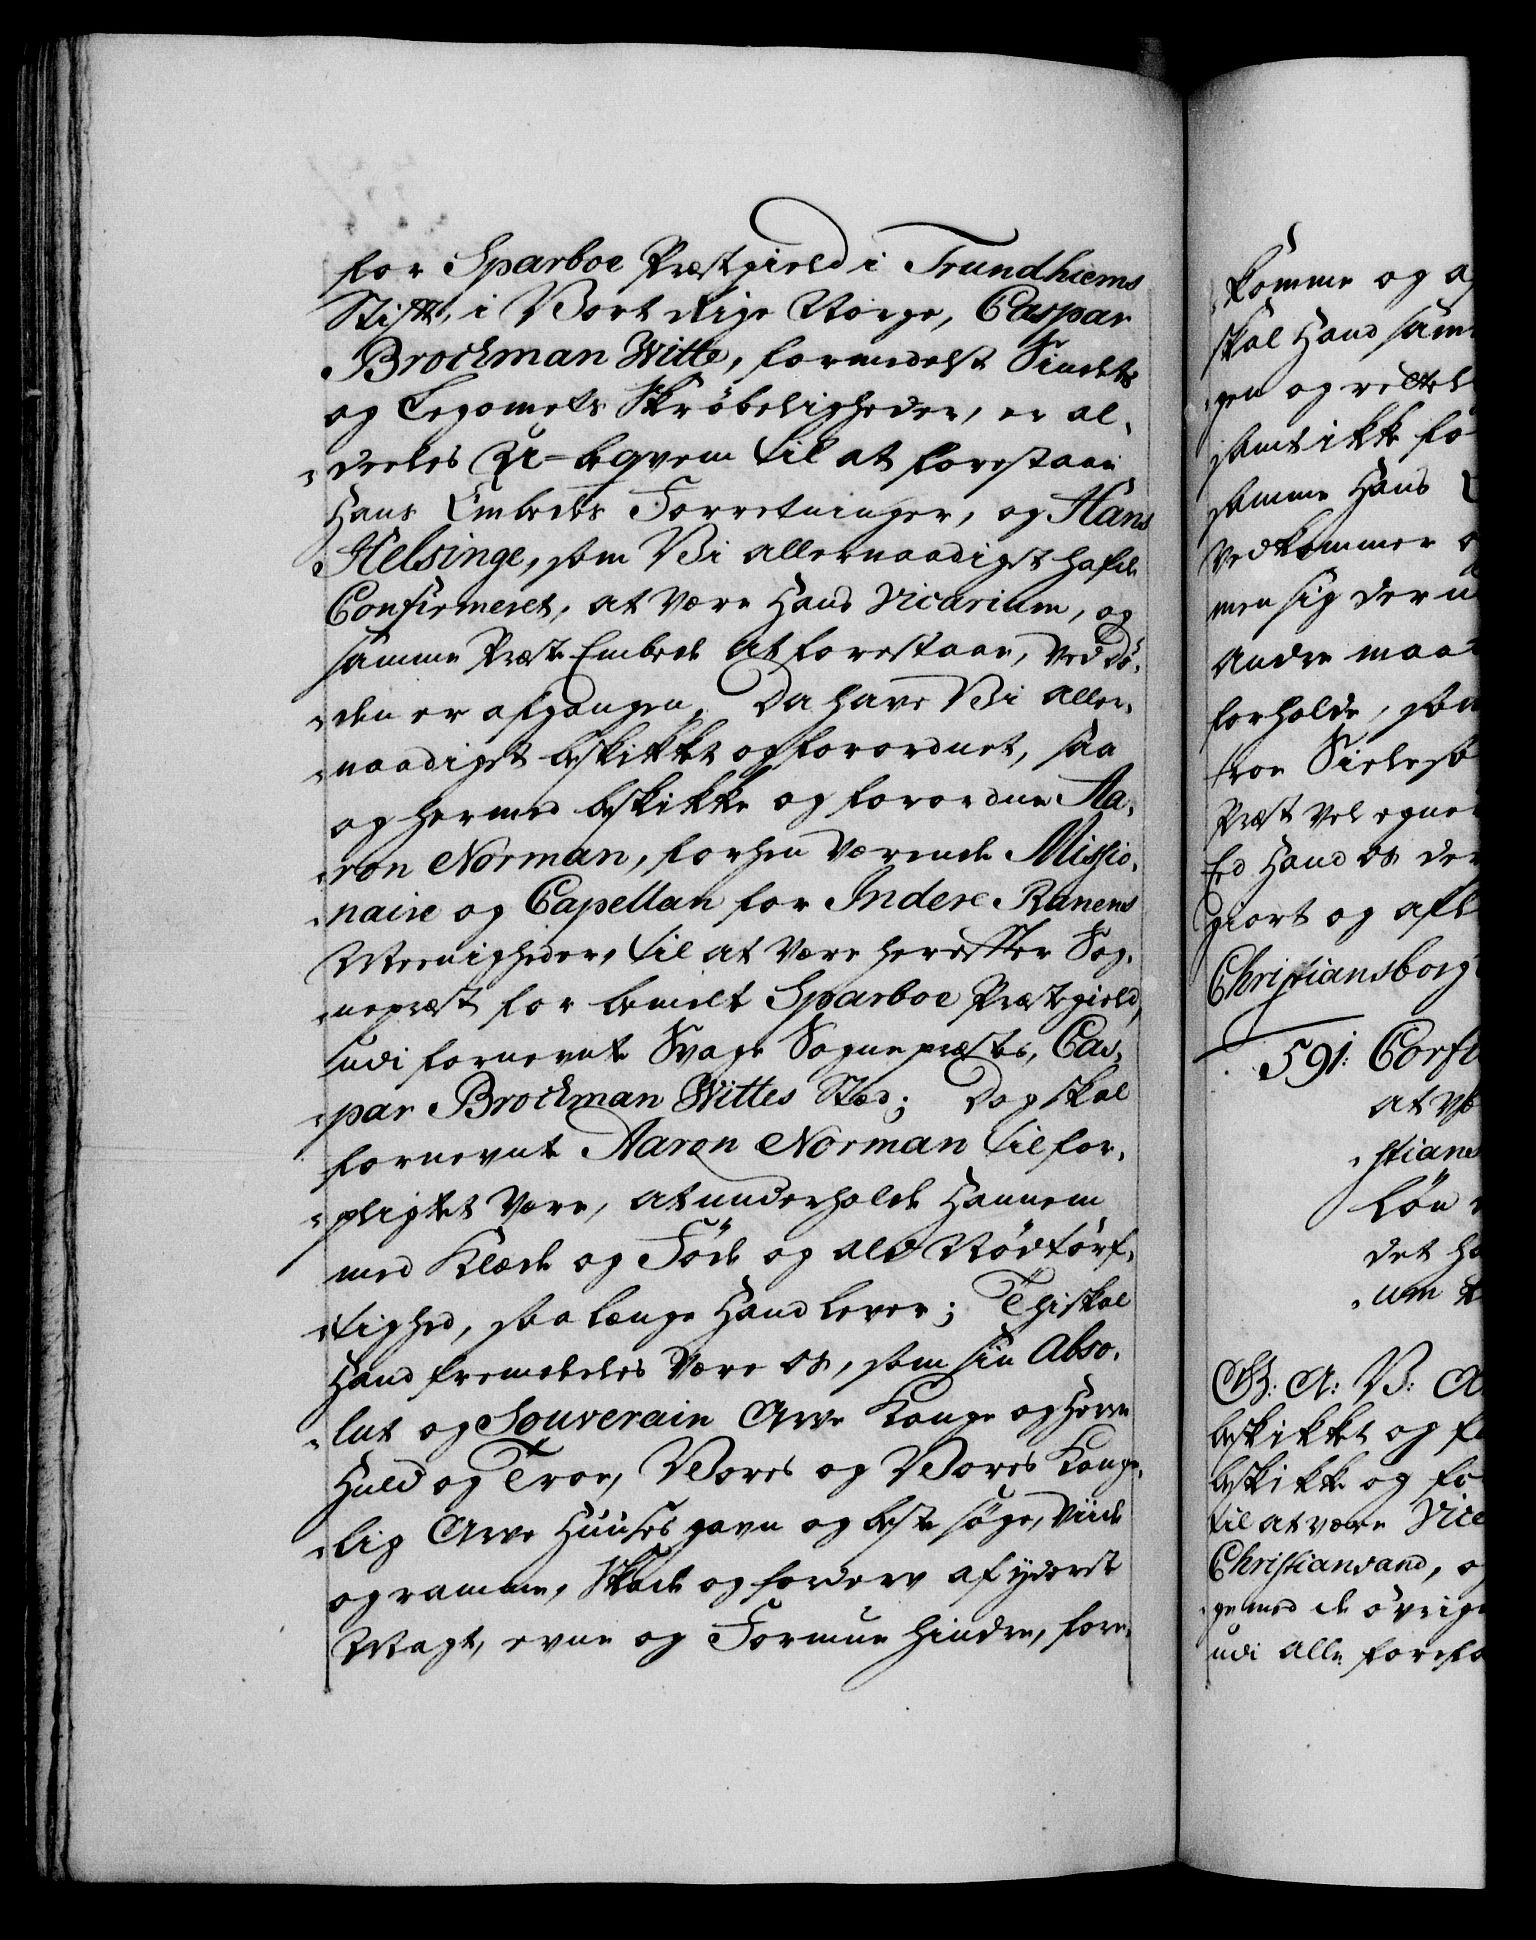 for Sparboe Præstgield i Trundhiems
Stift, i Vort Rige Norge, Caspar
Brochman Witte, formedelst Sindets
og Legomets Skrøbeligheder, er al-
deeles U-beqvem til at forestaae
Hans Embeds Forretninger, og Hans
Helsinge, som Vi allernaadigst hafde
Confirmeret, at være Hans Vicarium, og
samme Præste Embede at forestaae, ved Dø-
den er afgangen, Da have Vi aller-
naadigst beskikket og forordnet, saa
og hermed beskikke og forordne Aa-
ron Norman, forhen værende Missio-
naire og Capellan for Indere Ranens
Meenigheder, til at være herefter Sog-
nepræst for bemelte Sparboe Præstegield,
udi fornevnte Svage Sognepræstes, Cas-
par Brochman Wittes Stæd; Dog skal
fornevnte Aaron Norman tilfor-
pligtet være, at underholde Hannem
med Klæde og Føde og ald Nødtørf-
tighed, saa længe Hand lever; Thi skal
Hand fremdeeles være os, som sin Abso-
lut og Souverain Arve Konge og Herre
Huld og Troe, Vores og Vores Konge-
lig Arve Huuses gavn og beste søge, viide
og ramme, Skade og forderv af yderste
Magt, evne og Formue hindre, fore-
komme og af
skal Hand sam
gen og rettel
samt ikke fo
samme Hans
Vedkommer
men sig der u
Andre maad
forholde, saa
troe Sielesø
Præst vel egne
Eed Hand os der
giort og afl
Christiansborg
591: Conf
at v
stians
Løn
det ha
um
G: A: V: A
beskikket og fo
beskikke og fo
til at være Vice
Christiansand, o
ge med de øvrige
udi alle forefa